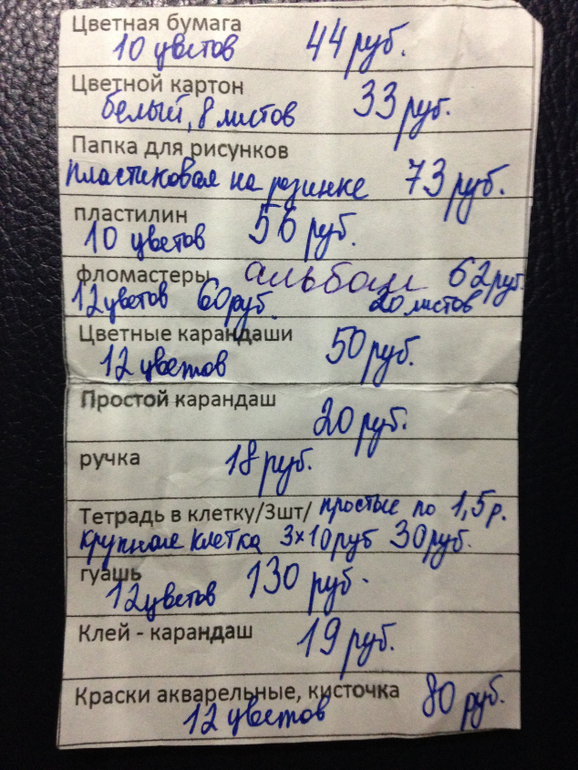 Цветная бумага
10 цветов 44 руб.
Цветной картон
белый, 8 листов 33 руб.
Папка для рисунков
пластиковая на резинке 73 руб.
пластилин
10 цветов 56 руб.
фломастеры альбом 62 руб.
12 цветов 60 руб. 20 листов
Цветные карандаши
12 цветов 50 руб.
Простой карандаш
20 руб.
ручка
18 руб.
Тетрадь в клетку/3шт/ простые по 1,5 р.
крупная клетка 3×10 руб 30 руб.
гуашь
12 цветов 130 руб.
Клей - карандаш
19 руб.
Краски акварельные, кисточка 80 руб.
12 цветов